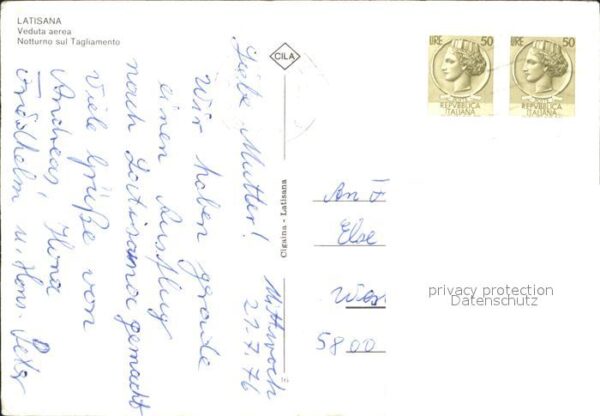 LATISANA
Veduta aerea
Notturno sul Tagliamento
CILA
Cigaina - Latisana
LIRE 50
REPVBBLICA
ITALIANA
LIRE 50
REPVBBLICA
ITALIANA
Mittwoch
21.7.76
Liebe Mutter!
Wir haben gerade
einen Ausflug
nach Latisana gemacht
Viele Grüße von
Andreas,
u. Hans Peter
An
Else
5800
privacy protection
Datenschutz